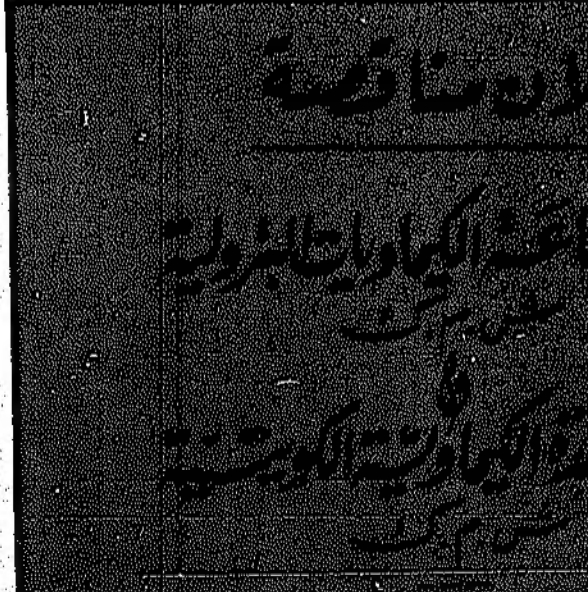 مناقصة
الكيماويات البترولية
ش.م.ك
و
الكيماوية الكويتية
ش.م.ك